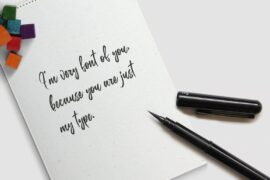 I'm very font of you
because you are just
my type.